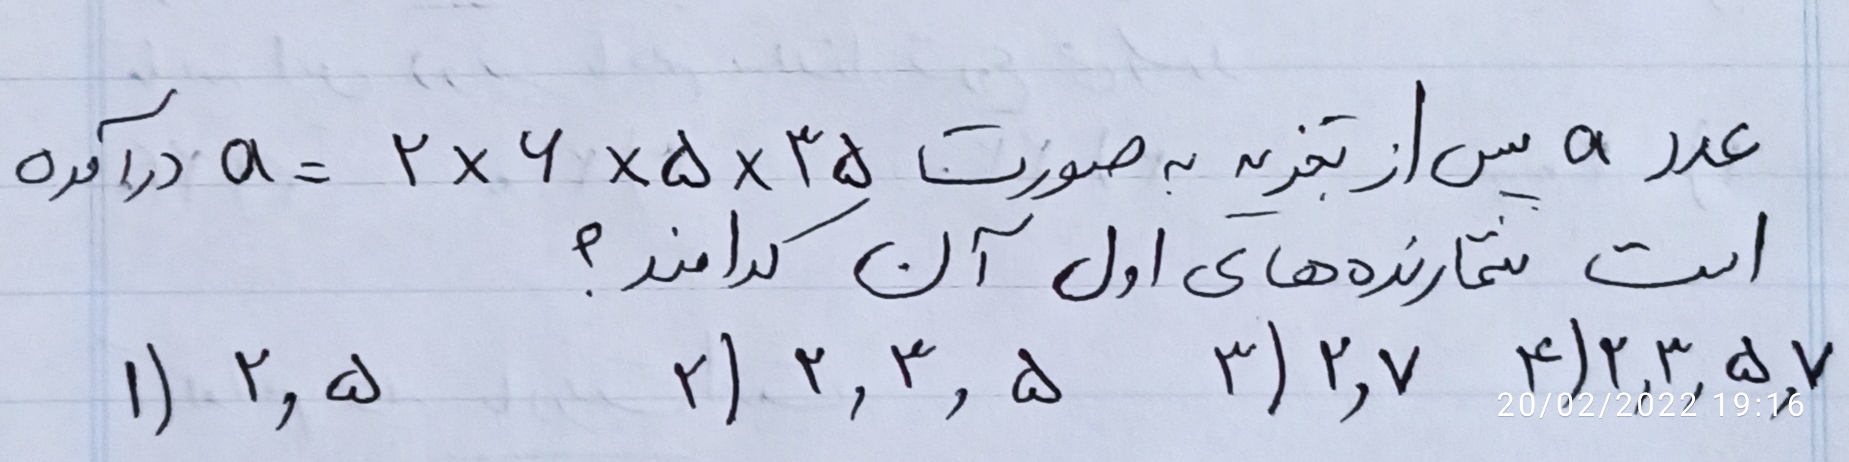 عدد a پس از تجزیه به صورت a = ۲ × ۶ × ۵ × ۳۵ درآمده
است شمارنده‌های اول آن کدامند؟
۱) ۲, ۵ ۲) ۲, ۳, ۵ ۳) ۲,۷ ۴) ۲,۳,۵,۷
20/02/2022 19:16